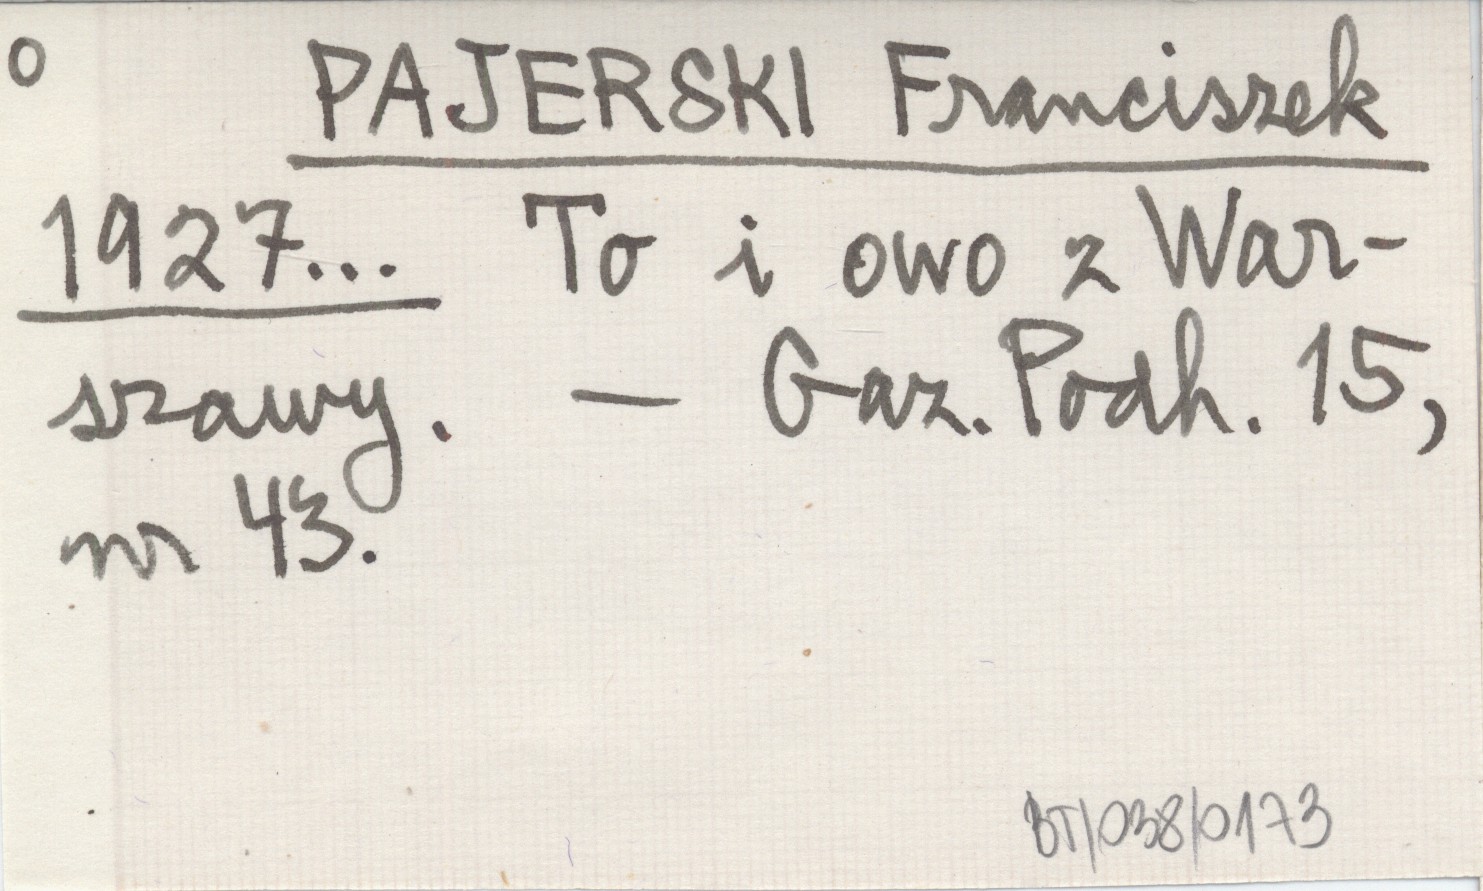 o PAJERSKI Franciszek
1927... To i owo z War-
szawy. — Gaz. Podh. 15,
nr 43.
BT/038/0173